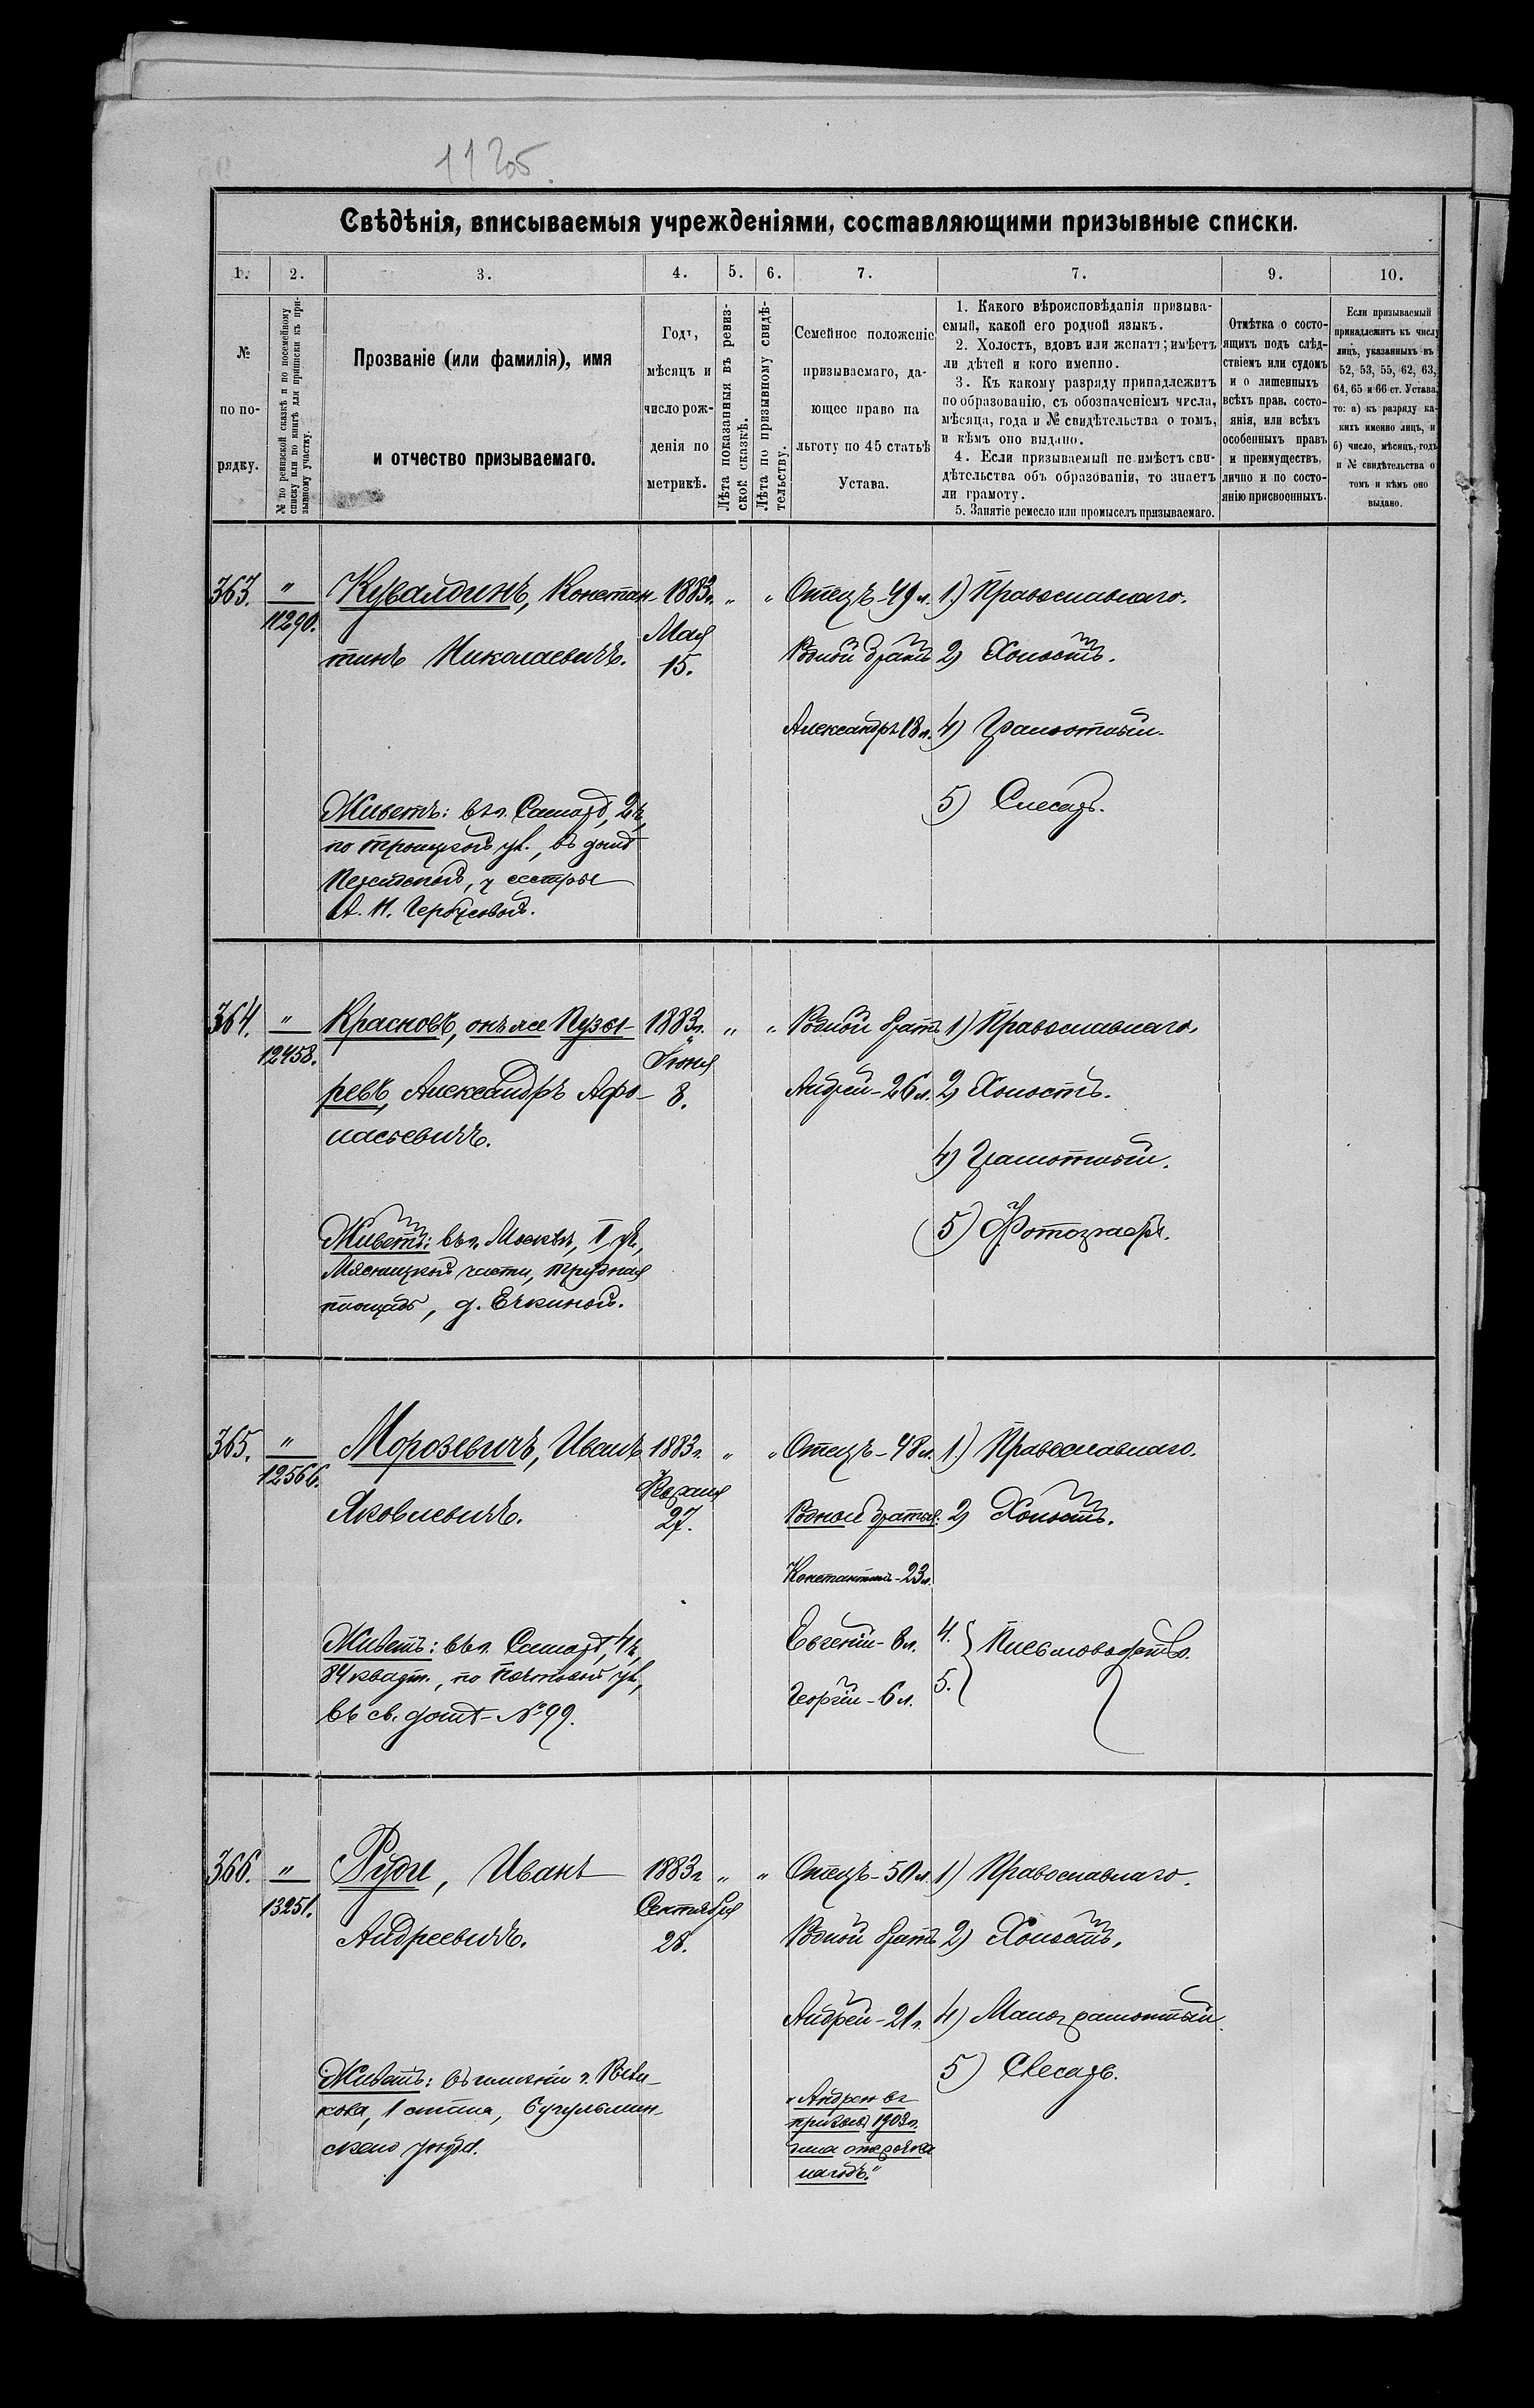 11205.
Свѣдѣнія, вписываемыя учрежденіями, составляющими призывные списки.
1. 2. 3. 4. 5. 6. 7. 7. 9. 10.
№
по по-
рядку.
№ по ревизской сказкѣ и по посемейному
списку или по книгѣ для приписки къ при-
зывному участку.
Прозваніе (или фамилія), имя
и отчество призываемаго.
Годъ,
мѣсяцъ и
число рож-
денія по
метрикѣ.
Лѣта показанныя въ ревиз-
ской сказкѣ.
Лѣта по призывному свидѣ-
тельству.
Семейное положеніе
призываемаго, да-
ющее право на
льготу по 45 статьѣ
Устава.
1. Какого вѣроисповѣданія призыва-
емый, какой его родной языкъ.
2. Холостъ, вдовъ или женатъ; имѣетъ
ли дѣтей и кого именно.
3. Къ какому разряду принадлежитъ
по образованію, съ обозначеніемъ числа,
мѣсяца, года и № свидѣтельства о томъ,
и кѣмъ оно выдано.
4. Если призываемый не имѣетъ сви-
дѣтельства объ образованіи, то знаетъ
ли грамоту.
5. Занятіе ремесло или промыселъ призываемаго.
Отмѣтка о состо-
ящихъ подъ слѣд-
ствіемъ или судомъ
и о лишенныхъ
всѣхъ прав. состо-
янія, или всѣхъ
особенныхъ правъ
и преимуществъ,
лично и по состо-
янію присвоенныхъ.
Если призываемый
принадлежитъ къ числу
лицъ, указанныхъ въ
52, 53, 55, 62, 63,
64, 65 и 66 ст. Устава,
то: а) къ разряду ка-
кихъ именно лицъ, и
б) число, мѣсяцъ, годъ
и № свидѣтельства о
томъ и кѣмъ оно
выдано.
363.
"
11290.
Кувалдинъ, Констан-
тинъ Николаевичъ.
Живетъ: въ г. Самарѣ, 2 ч.,
по Троицкой ул., въ домѣ
у сестры
А. Н.
1883 г.
Мая
15.
" "
Отецъ-49 л.
Родной братъ
Александръ 18 л.
1.) Православнаго.
2) Холостъ.
4) Грамотный.
5) Слесарь.
364.
"
12458.
Красновъ, онъ же Пузы-
ревъ, Александръ Афа-
насьевичъ.
Живетъ: въ г. Москвѣ, I уч.,
Мясницкой части, Трубная
площадь, д. Ечкиной.
1883 г.
Іюня
8.
" "
Родной братъ
Андрей-26 л.
1) Православнаго.
2) Холостъ.
4) Грамотный.
5) Фотографъ.
365.
"
12566.
Морозевичъ, Иванъ
Яковлевичъ.
Живетъ: въ г. Самарѣ, 4 ч.,
84 кварт., по Почтовой ул.,
въ св. домѣ-№ 99.
1883 г.
Января
27.
" "
Отецъ-48 л.
Родные братья:
Константинъ-23 л.
Евгеній-8 л.
Георгій-6 л.
1.) Православнаго.
2) Холостъ.
4.
5. } Письмоводство.
366.
"
13251.
Руди, Иванъ
Андреевичъ.
Живетъ: въ имѣніи г.
1 стана, Бугульмин-
скаго уѣзда.
1883 г.
Сентября
28.
" "
Отецъ-50 л.
Родной братъ
Андрей-21 г.
„Андрею въ
призывъ 1903 г.
дана отсрочка
на годъ."
1) Православнаго.
2) Холостъ.
4) Малограмотный.
5) Слесарь.